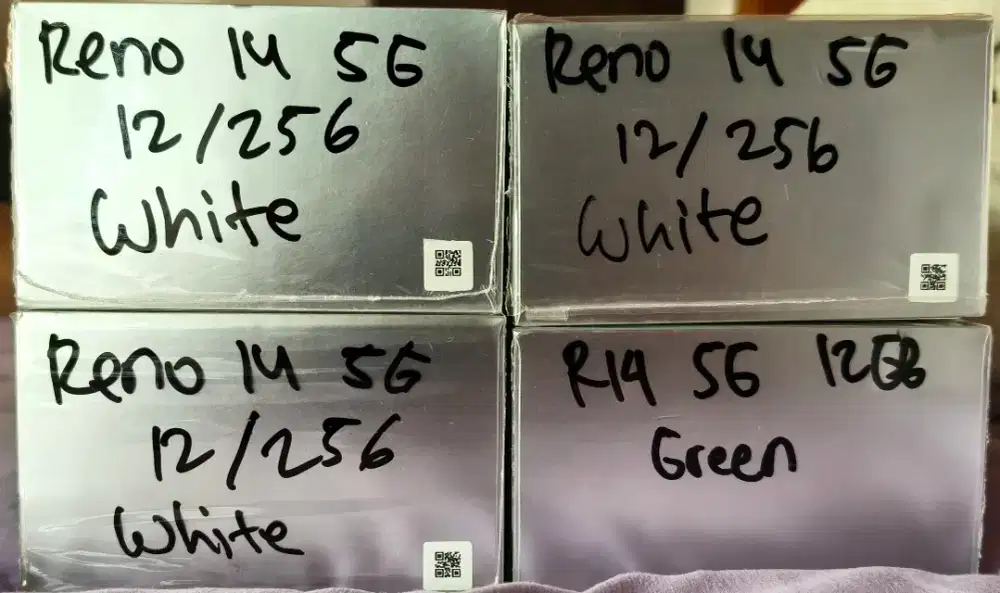 Reno 14 5G
12/256
White
Reno 14 5G
12/256
White
Reno 14 5G
12/256
White
R14 5G 12GB
Green